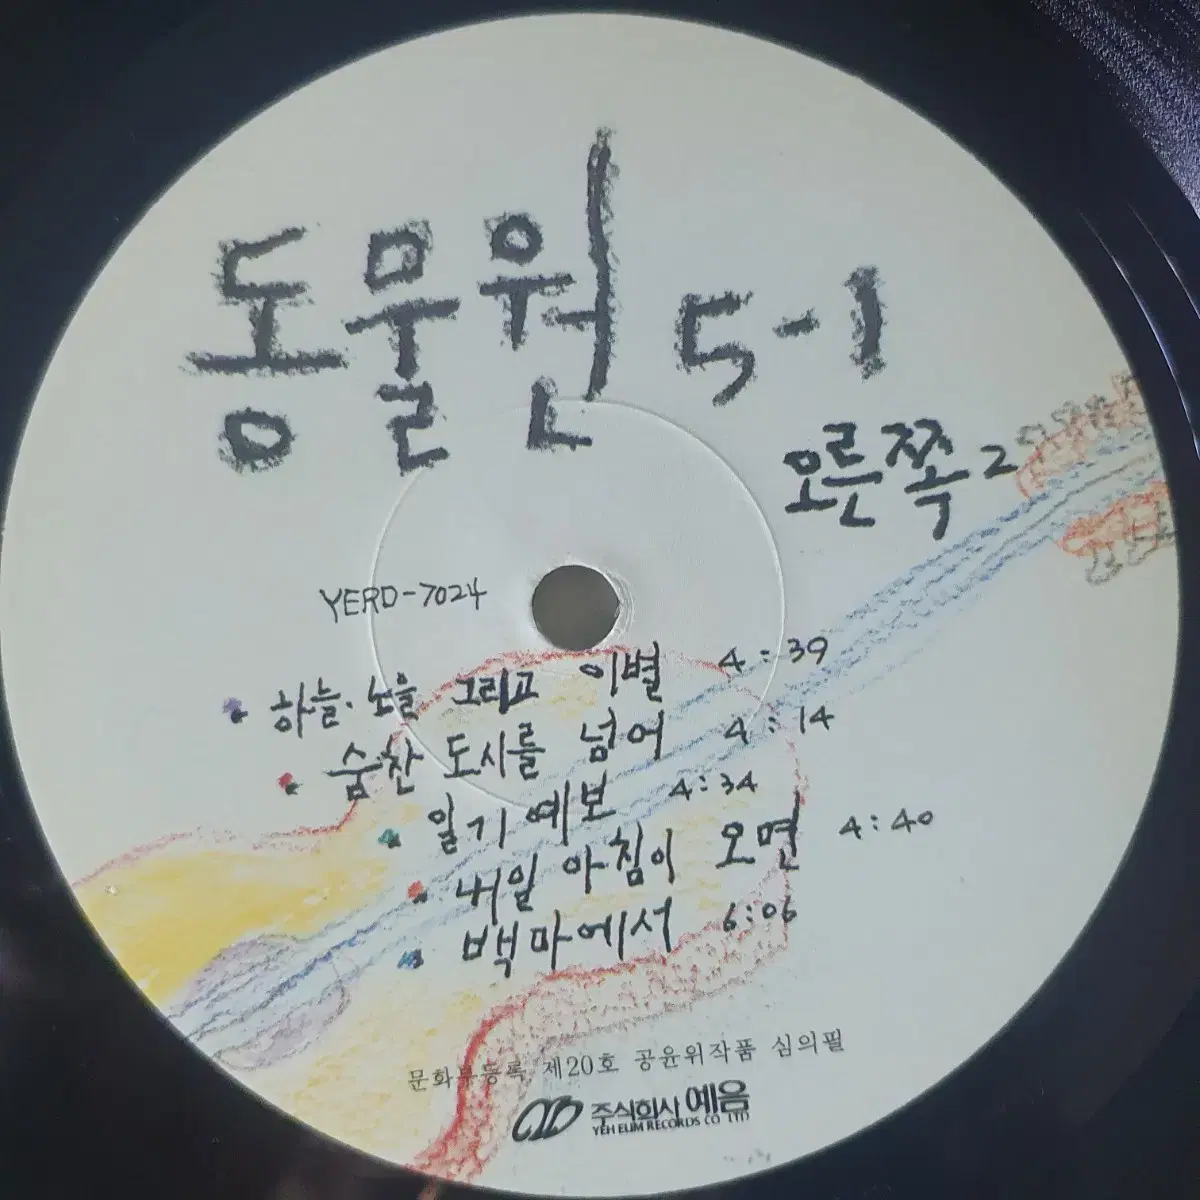 동물원 5-1
오른쪽 2
YERD-7024
• 하늘. 노을 그리고 이별 4:39
• 숨찬 도시를 넘어 4:14
• 일기예보 4:34
• 내일 아침이 오면 4:40
• 백마에서 6:06
문화부등록 제20호 공윤위작품 심의필
주식회사 예음
YEH EUM RECORDS CO LTD